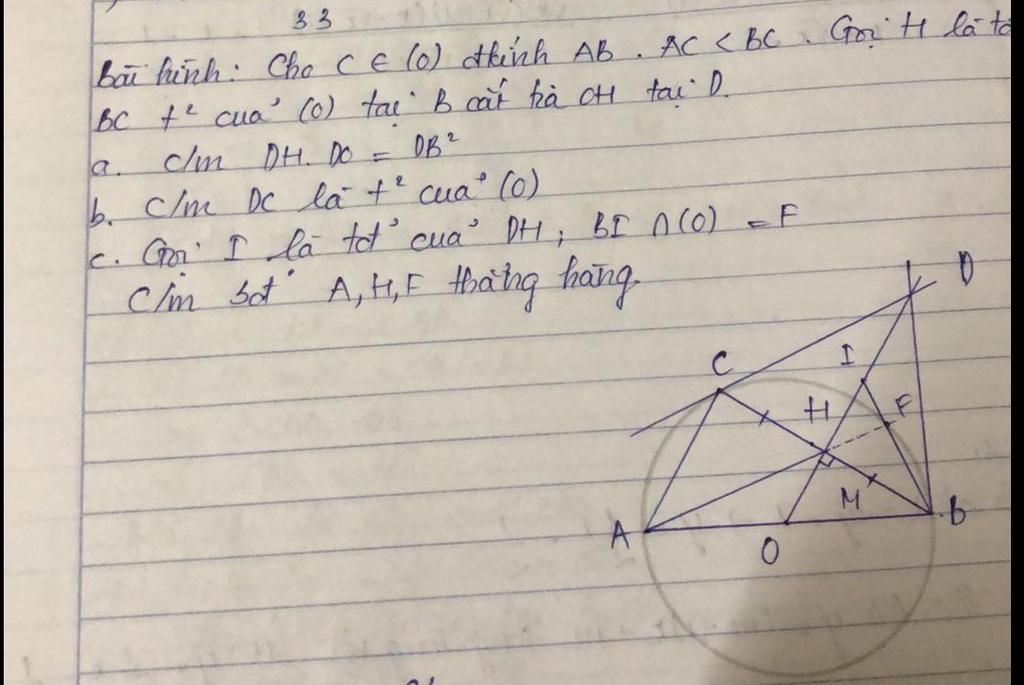 33
Bài hình: Cho C ∈ (O) đkính AB. AC < BC. Gọi H là tđ
BC t² của (O) tại B cắt tia OH tại D.
a. c/m DH. DO = DB²
b. C/m DC là t² của (O)
c. Gọi I là tđ' của DH; BI ∩ (O) = F
C/m 3đ' A, H, F thẳng hàng.
D
C
I
H
F
M
A
B
O